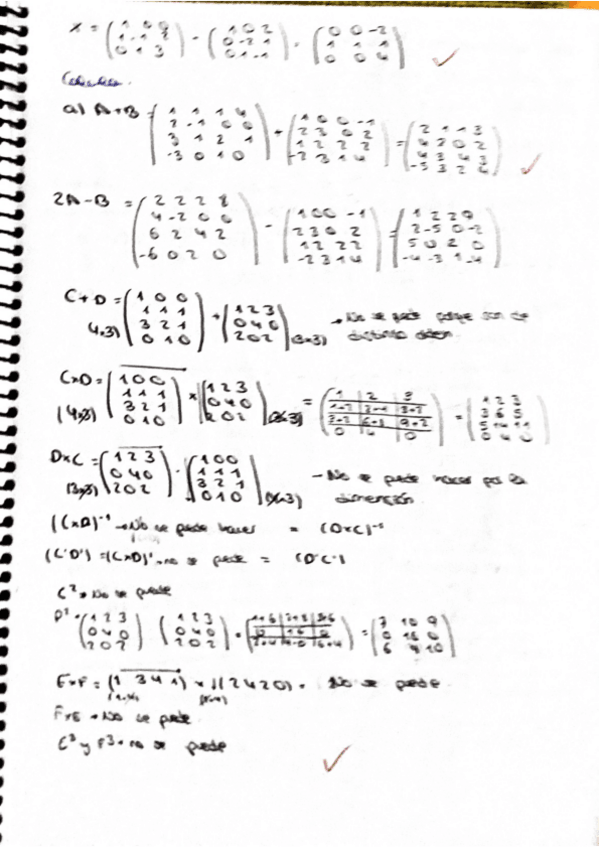 X = (1 0 0 / 1 -1 2 / 0 1 3) - (1 0 2 / 0 -2 1 / 0 1 -1) · (0 0 -2 / 1 1 1 / 0 0 4)
a) A+B = (1 1 1 4 / 2 -1 0 0 / 3 1 2 1 / -3 0 1 0) + (1 0 0 -1 / 2 3 0 2 / 1 2 2 2 / -2 3 1 4) = (2 1 1 3 / 4 2 0 2 / 4 3 4 3 / -5 3 2 4)
2A-B = (2 2 2 8 / 4 -2 0 0 / 6 2 4 2 / -6 0 2 0) - (1 0 0 -1 / 2 3 0 2 / 1 2 2 2 / -2 3 1 4) = (1 2 2 9 / 2 -5 0 -2 / 5 0 2 0 / -4 -3 1 -4)
C+D = (1 0 0 / 1 1 1 / 3 2 1 / 0 1 0) + (1 2 3 / 0 4 0 / 2 0 2) (3x3) → No se puede porque son de
(4x3) distinto orden.
CxD = (1 0 0 / 1 1 1 / 3 2 1 / 0 1 0) x (1 2 3 / 0 4 0 / 2 0 2) (3x3) = = (1 2 3 / 3 6 5 / 5 14 11 / 0 4 0)
(4x3)
DxC = (1 2 3 / 0 4 0 / 2 0 2) · (1 0 0 / 1 1 1 / 3 2 1 / 0 1 0) - No se puede hacer por la
(3x3) dimensión.
(CxD)⁻¹ → No se puede hacer = (DxC)⁻¹
(C'D') = (CxD)', no se puede = (D'C')
C² → No se puede
D² = (1 2 3 / 0 4 0 / 2 0 2) (1 2 3 / 0 4 0 / 2 0 2) = = (7 10 9 / 0 16 0 / 6 4 10)
ExF = (1 3 4 1) x (2 4 2 0) = No se puede.
FxE → No se puede.
C³ y F³ → no se puede